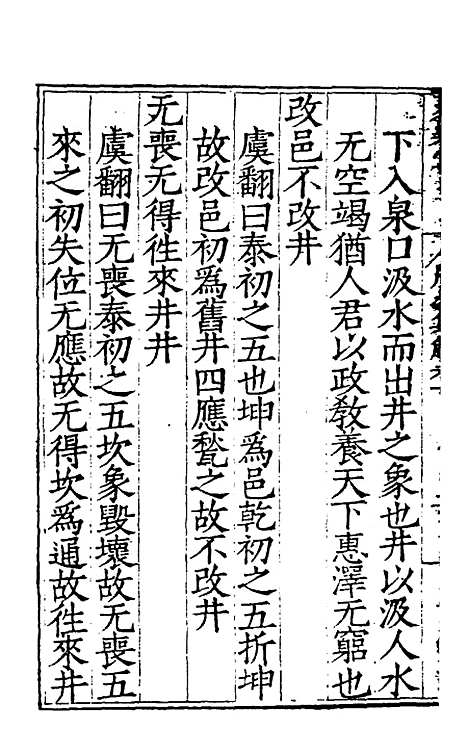 下入泉口汲水而出井之象也井以汲人水
无空竭猶人君以政敎養天下惠澤无窮也
改邑不改井
虞翻曰泰初之五也坤爲邑乾初之五折坤
故改邑初爲舊井四應甃之故不改井
无喪无得徃來井井
虞翻曰无喪泰初之五坎象毀壞故无喪五
來之初失位无應故无得坎爲通故徃來井